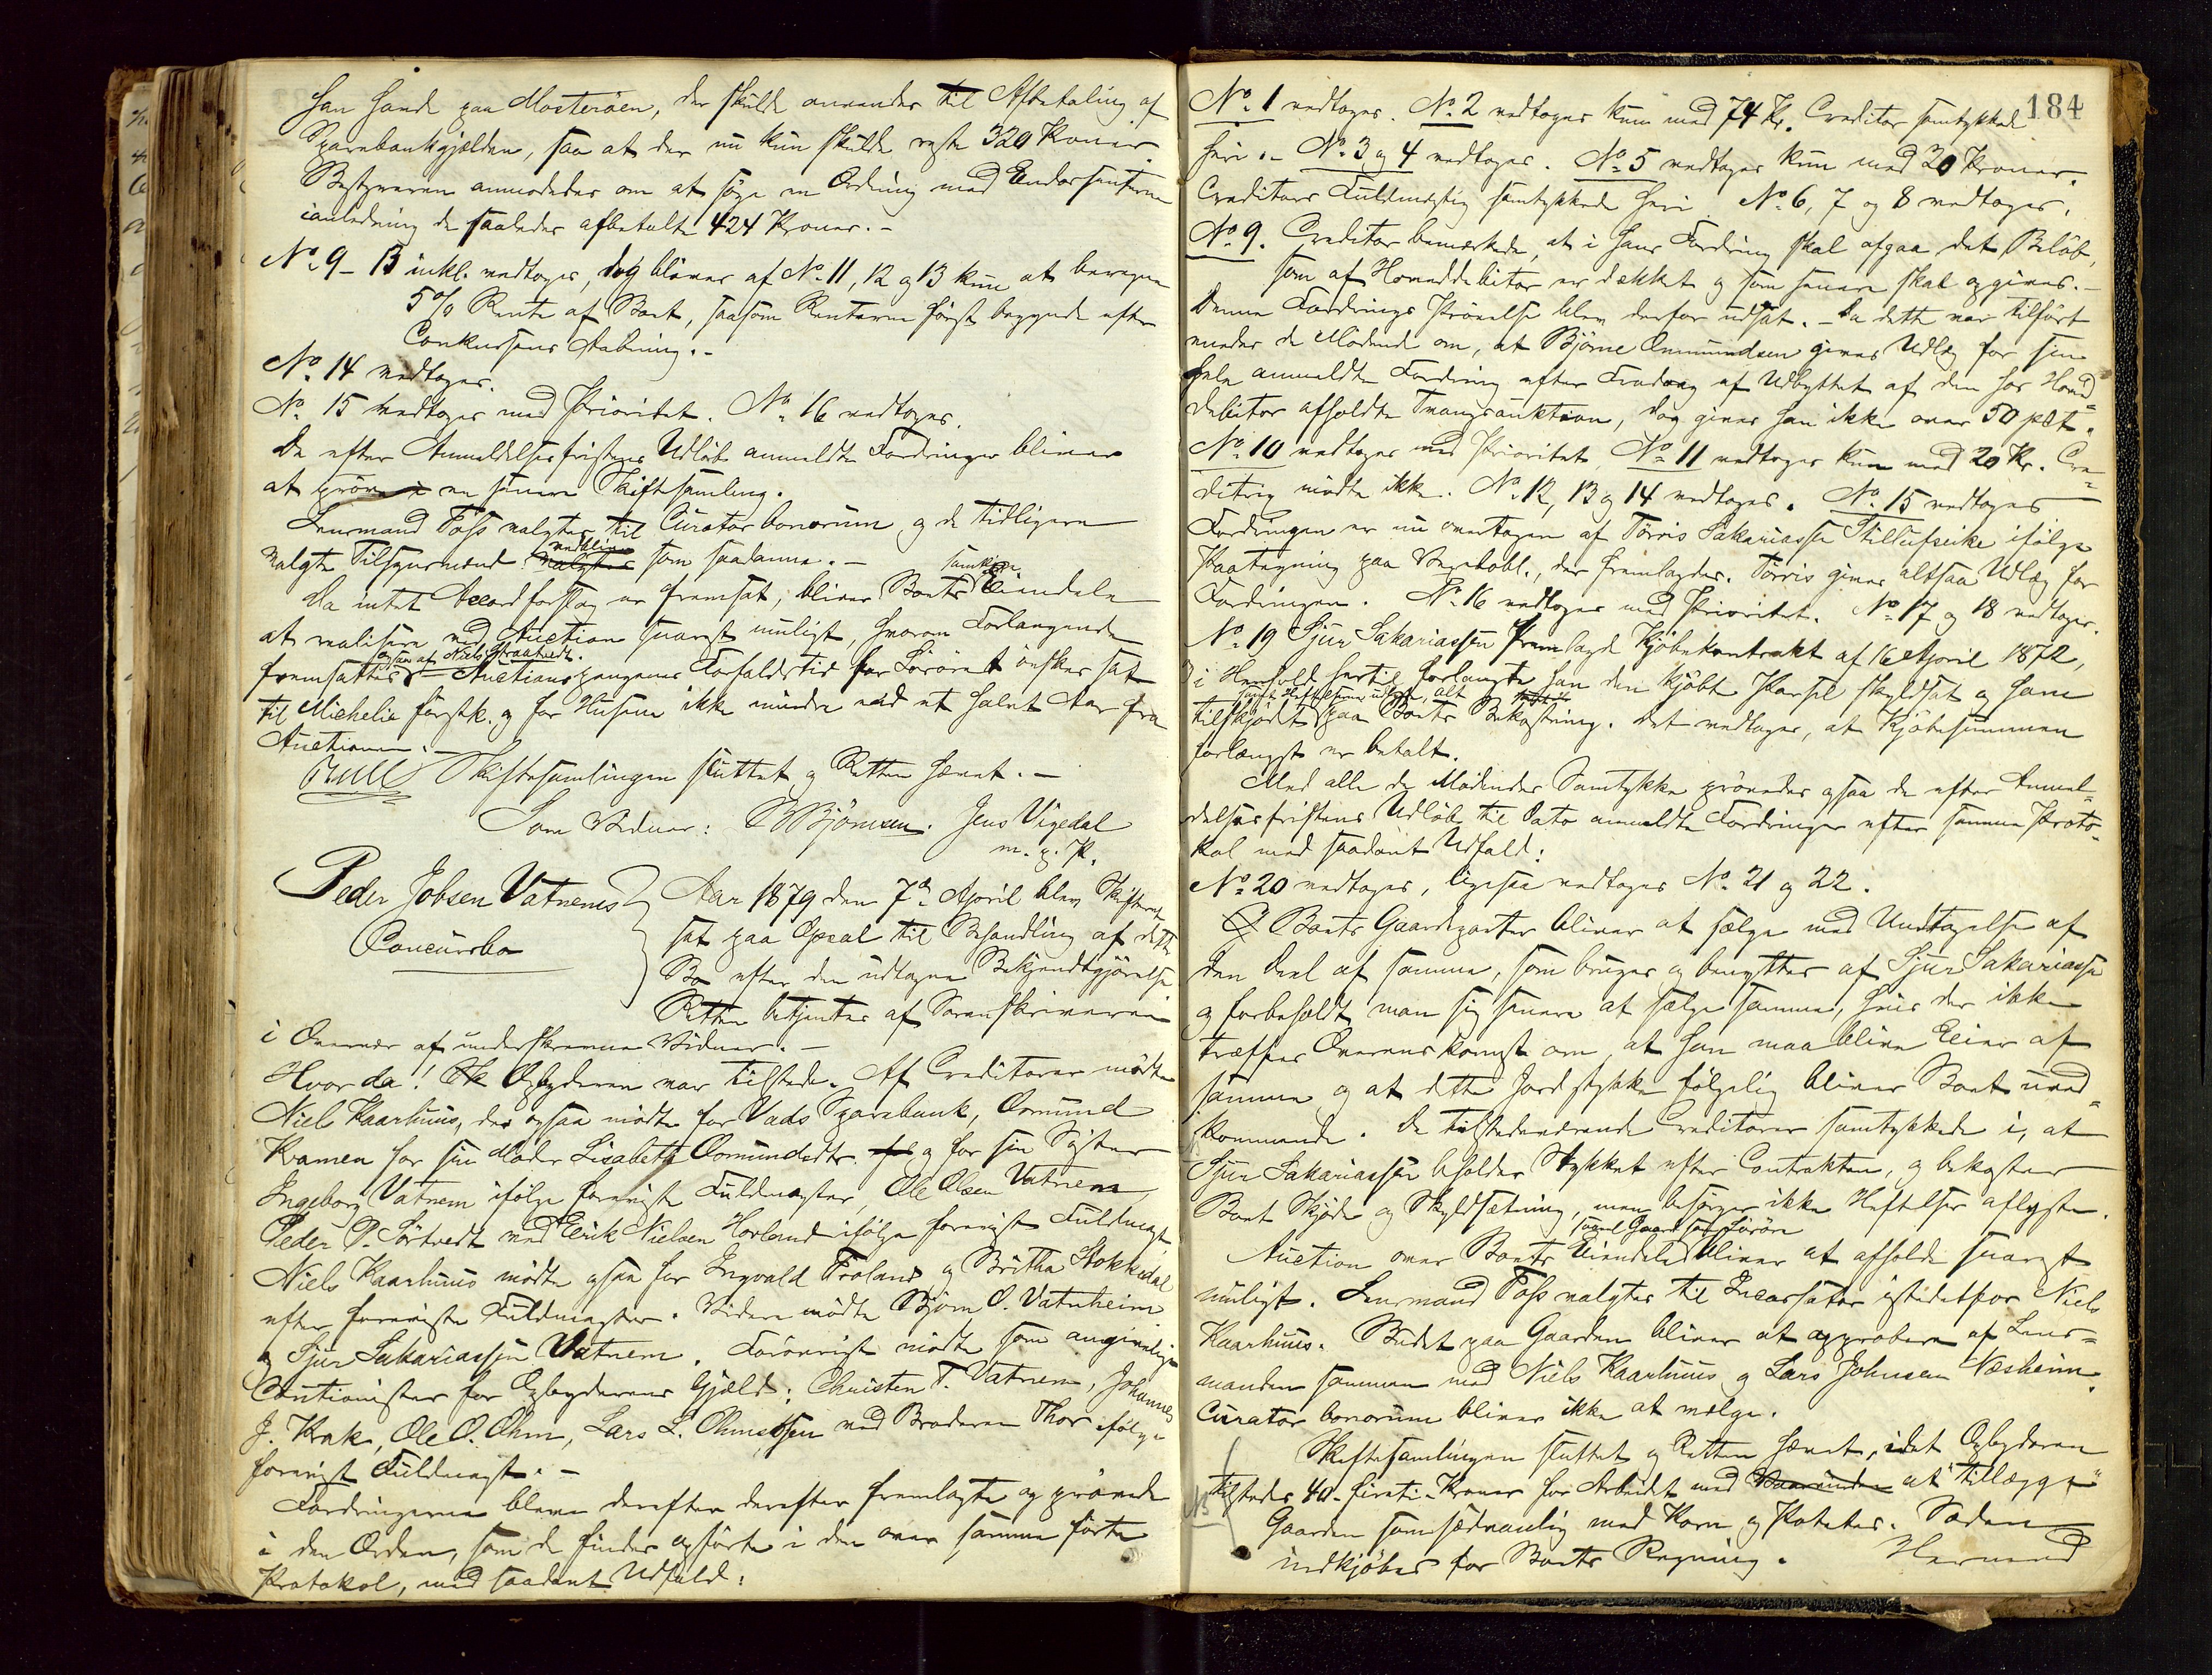 han havde paa Mosterøen, der skulde anvendes til Afbetaling af
Sparebankgjælden, saa at der nu kun skulde reste 320 Kroner.
Bestyreren anmodedes om at søge en Ordning med Endossenterne
ianledning de saaledes afbetalte 424 Kroner. -
No. 9 - 13 inkl. vedtoges, dog bliver af No. 11, 12 og 13 kun at beregne
5 % Rente af Boet, saasom Renterne først begynde efter
Conkursens Aabning. -
No. 14 vedtoges.
No. 15 vedtoges med Prioritet. No. 16 vedtoges.
De efter Anmeldelsesfristens Udløb anmeldte Fordringer bliver
at prøve i en senere Skiftesamling.
Lensmand Foss valgtes til Curator bonorum og de tidligere
valgte Tilsynsmænd valgtes vedbliver som saadanne. -
Da intet Accordforslag er fremsat, bliver Boets samtlige Eiendele
at realisere ved Auction snarest muligt, hvorom Forlangende
fremsattes ogsaa af Niels Straatvedt. - Auctionspengenes Forfaldstid for Løsøret ønskes sat
til Michelie førstk. og for Husene ikke mindre end et halvt Aar fra
Auctionen. -
Skiftesamlingen sluttet og Retten hævet. -
Som Vidner: S Bjørnsen. Jens Vigedal
m. p. P.
Peder Jobsen Vatnems
Concursbo
Aar 1879 den 7de April blev Skifteret
sat paa Opsal til Behandling af dette
Bo efter den udtagne Bekjendtgjørelse
Retten betjentes af Sorenskriveren
i Overvær af underskrevne Vidner. -
Hvor da! Opbyderen var tilstede. Af Creditorer mødte
Niels Kaarhuus, der ogsaa mødte for Vads Sparebank, Omund
Kramen for sin Moder Lisabeth Omundsdtr. og for sin Søster
Ingeborg Vatnem ifølge forevist Fuldmagter, Ole Olsen Vatnem
Peder P. Sørtvedt ved Eerik Nielsen Hovland ifølge forevist Fuldmagt
Niels Kaarhuus mødte ogsaa for Ingvald Frøland og Britha Stokkedal
efter foreviste Fuldmagter. Videre mødte Bjørn O. Vatnheim
og Sjur Sakariassen Vatnem. Forøvrigt mødte som angivelige
Cautionister for Opbyderens Gjæld: Christen T. Vatnem, Johannes
J. Krak, Ole O. Ohm, Lars L. Ohmsksen ved Broderen Thor ifølge
forevist Fuldmagt. -
Fordringerne bleve derefter derefter fremlagte og prøvede
i den Orden, som de findes opførte i den over samme førte
Protokol, med saadant Udfald:
184
No. 1 vedtoges. No. 2 vedtoges kun med 74 Kr. Creditor samtykkede
heri. - No. 3 og 4 vedtoges. No. 5 vedtoges kun med 20 Kroner.
Creditors Fuldmægtig samtykkede heri. No. 6, 7 og 8 vedtoges.
No. 9. Creditor bemærkede, at i hans Fordring skal afgaa det Beløb,
som af Hoveddebitor er dækket og som senere skal opgives. -
Denne Fordrings Prøvelse blev derfor udsat. - Da dette var tilført
enedes de Mødende om, at Bjørne Ommundsen gives Udlæg for sin
hele anmeldte Fordring efter Fradrag af Udbyttet af den hos Hoved-
debitor afholdte Tvangsauktion, dog gives han ikke over 50 pct.
No. 10 vedtoges med Prioritet. No. 11 vedtoges kun med 20 Kr. Cre-
ditrix mødte ikke. No. 12, 13 og 14 vedtoges. No. 15 vedtoges
Fordringen er nu overtagen af Tørris Sakariassen ifølge
Paategning paa Beviset, der fremlagdes. Tørris gives altsaa Udlæg for
Fordringen. No. 16 vedtoges med Prioritet. No. 17 og 18 vedtoges.
No. 19 Sjur Sakariassen fremlagde Kjøbekontrakt af 16 April 1872,
i Henhold hertil forlangte han den kjøbte Parsel skyldsat og ham
tilskjødet samt Heftelserne udslettet, alt paa Boets Bekostning. Det vedtoges, at Kjøbesummen
forlængst er betalt.
Med alle de Mødendes Samtykke prøvedes ogsaa de efter Anmel-
delsesfristens Udløb til Dato anmeldte Fordringer efter samme Proto-
kol med saadant Udfald:
No. 20 vedtoges, ligesaa vedtoges No. 21 og 22.
Boets Gaardparter bliver at sælge med Undtagelse af
den Deel af samme, som bruges og benyttes af Sjur Sakariassen
og forbeholdt man sig senere at sælge samme, hvis der ikke
træffes Overenskomst om, at han maa blive Eier af
samme og at dette Jordstykke følgelig bliver Boet uved-
kommende. De tilstedeværende Creditorer samtykkede i, at
Sjur Sakariassen beholder Stykket efter Contrakten, og bekoster
Boet Skjøde og Skyldsætning, men besørger ikke Heftelser aflyste.
Auction over Boets Eiendele saavel Gaard som Løsøre bliver at afholde snarest
muligt. Lensmand Foss valgtes til Incassator istedetfor Niels
Kaarhuus. Budet paa Gaarden bliver at approbere af Lens-
manden sammen med Niels Kaarhuus og Lars Johnsen Næsheim.
Curator bonorum bliver ikke at vælge.
Skiftesamlingen sluttet og Retten hævet, idet Opbyderen
tilstodes 40 - firti - Kroner for Arbeidet med Vaaronden at tillægge
Gaarden som sædvanlig med Korn og Poteter. Sæden
indkjøbes for Boets Regning. Herved